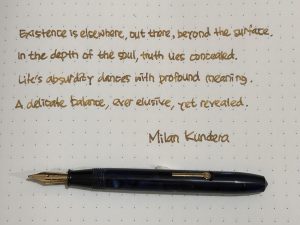 Existence is elsewhere, out there, beyond the surface.
In the depth of the soul, truth lies concealed.
Life's absurdity dances with profound meaning.
A delicate balance, ever elusive, yet revealed.
Milan Kundera